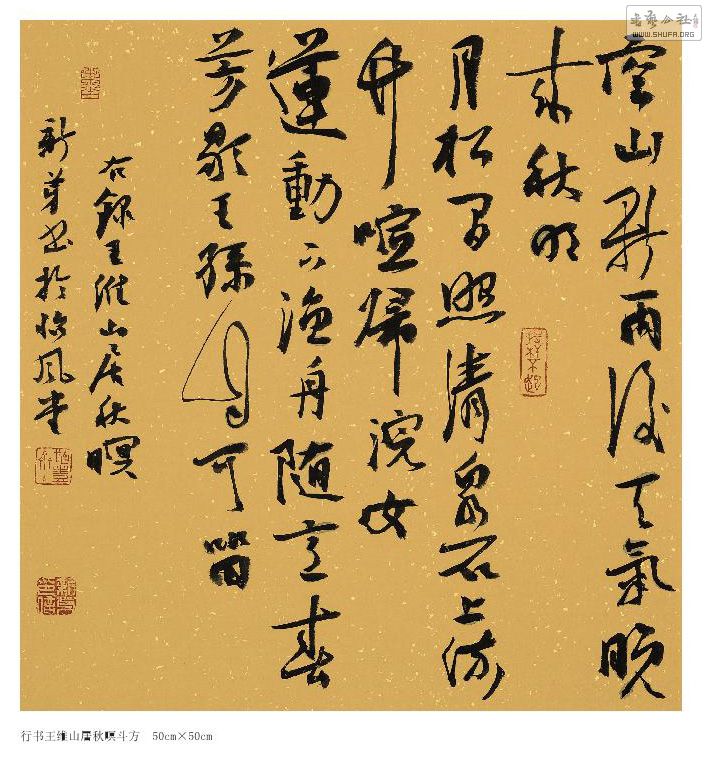 书艺公社
WWW.SHUFA.ORG
空山新雨後天氣晚
来秋明
月松间照清泉石上流
竹喧歸浣女
蓮動下漁舟随意春
芳歇王孫自可留
右録王維山居秋暝
新书於风堂
行书王维山居秋暝斗方 50cm×50cm